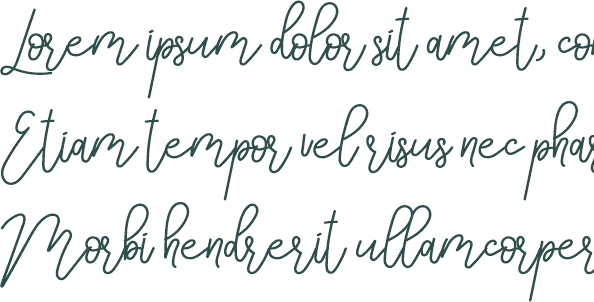 Lorem ipsum dolor sit amet, con
Etiam tempor vel risus nec phar
Morbi hendrerit ullamcorper